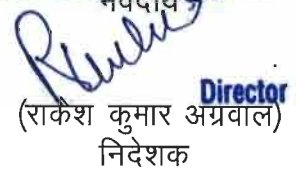 Director
(राकेश कुमार अग्रवाल)
निदेशक